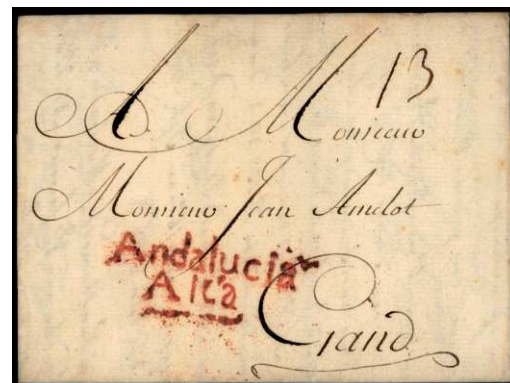 13
A Monsieur
Monsieur Jean Amelot
Andalucia
Alta
Gand